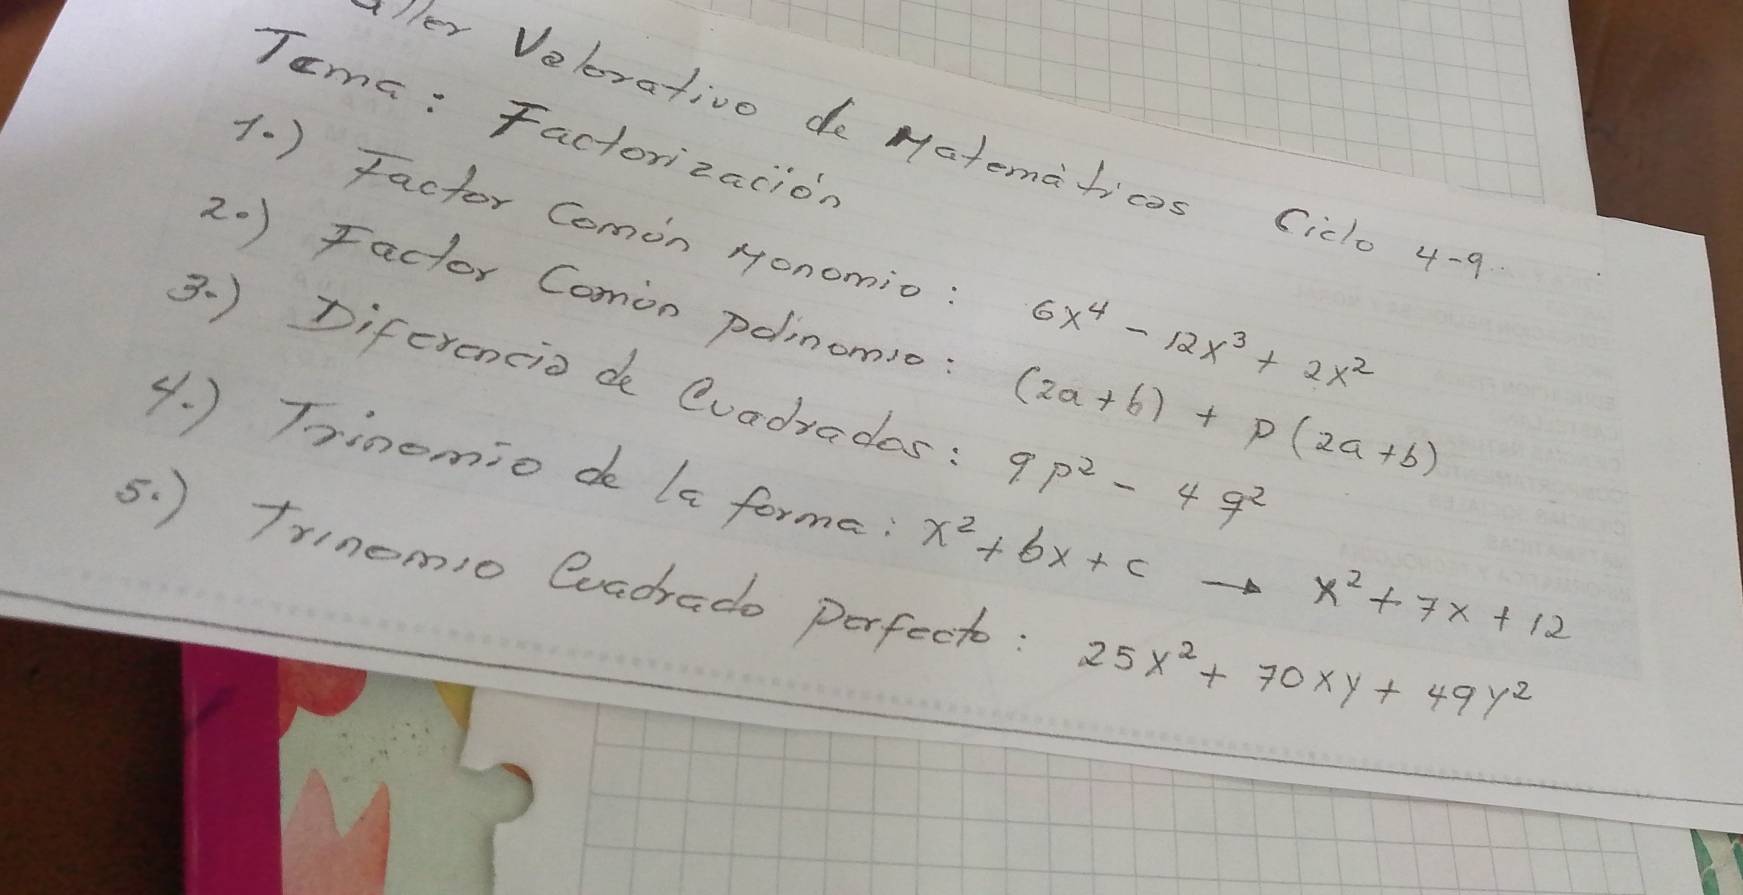 Valorativo de Matemáticas Ciclo 4-9
Tema: Factorización
1.) Factor Común Monomio: 6x⁴ - 12x³ + 2x²
2.) Factor Común polinomio: (2a+b) + p(2a+b)
3.) Diferencia de Cuadrados: 9p² - 4q²
4.) Trinomio de la forma: x²+bx+c → x²+7x+12
5.) Trinomio Cuadrado perfecto: 25x²+70xy+49y²